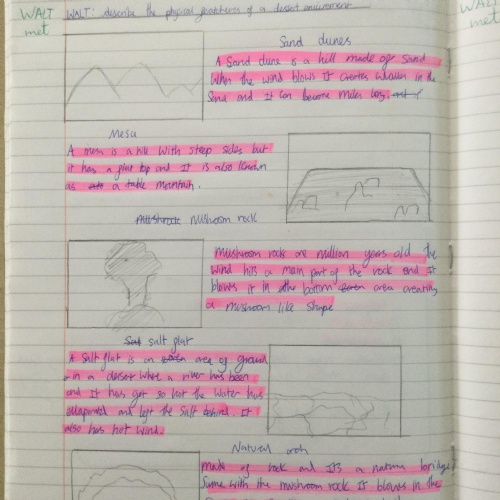 WALT WALT: describe the physical features of a desert environment WALT
met met
Sand dunes
A Sand dune is a hill made of Sand
When the wind blows It creates in the
Sand and It can become miles long.
Mesa
A mesa is a hill With steep sides but
it has a flat top and It is also known
as a table mantain.
mushroom rock
mushroom rock are million years old the
wind hits a main part of the rock and It
blows it in the bottom area creating
a mushroom like shape
salt flat
A salt flat is an area of ground
in a where a river has been
and It has got so hot the water has
evaporated and left the Salt behind. It
also has hot wind.
Natural arch
made of rock and It's a natural bridge
Same with the mushroom rock It blows in the